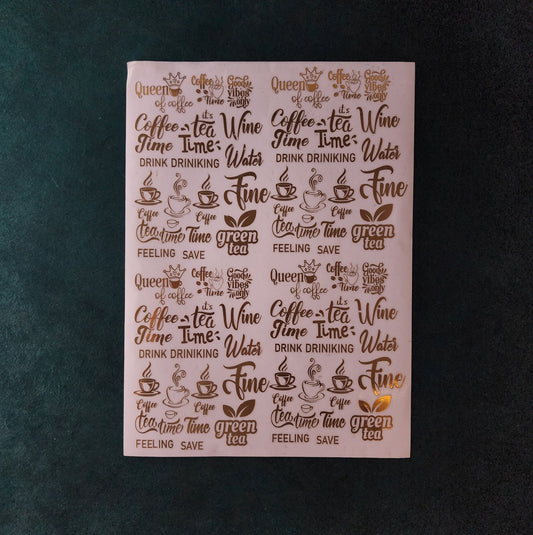 Queen of coffee Coffee Time Good vibes only Queen of coffee Coffee Time Good vibes only
Coffee Time it's tea Time Wine Coffee Time it's tea Time Wine
DRINK DRINIKING Water DRINK DRINIKING Water
Fine Fine
Coffee Coffee Coffee Coffee
tea time Time green tea tea time Time green tea
FEELING SAVE FEELING SAVE
Queen of coffee Coffee Time Good vibes only Queen of coffee Coffee Time Good vibes only
Coffee Time it's tea Time Wine Coffee Time it's tea Time Wine
DRINK DRINIKING Water DRINK DRINIKING Water
Fine Fine
Coffee Coffee Coffee Coffee
tea time Time green tea tea time Time green tea
FEELING SAVE FEELING SAVE